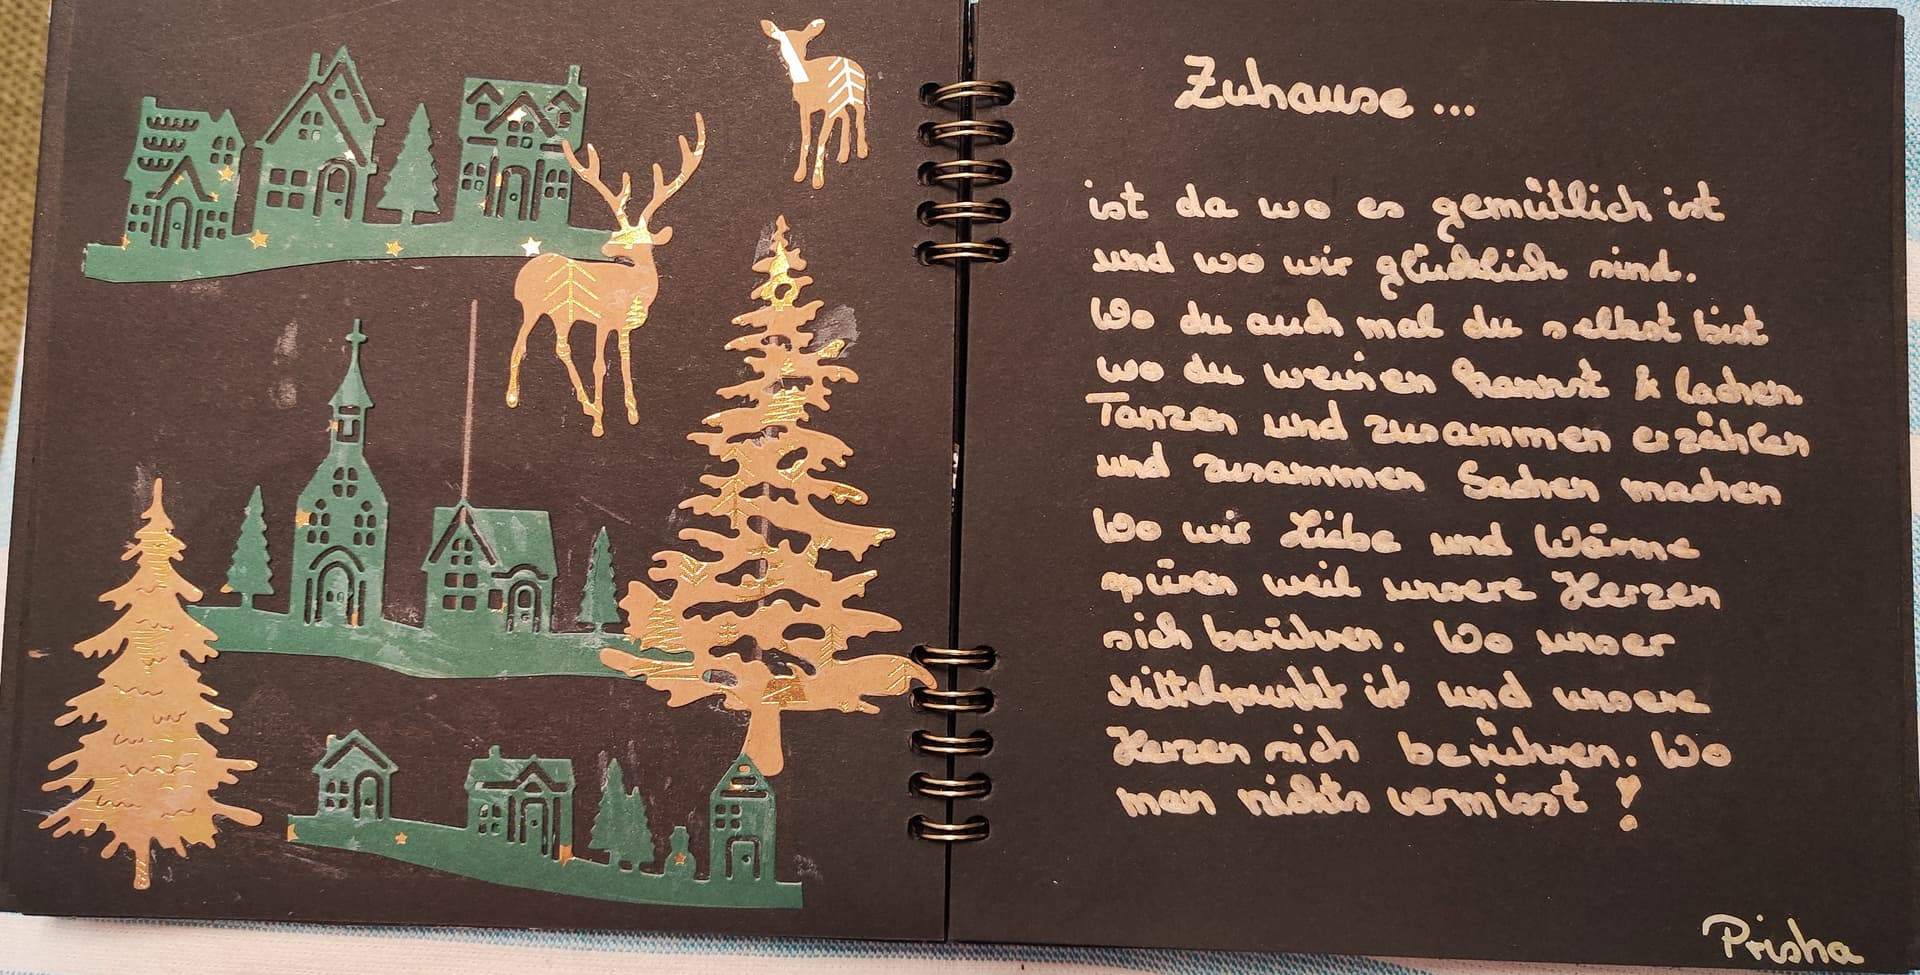 Zuhause...
ist da wo es gemütlich ist
und wo wir glücklich sind.
Wo du auch mal du selbst bist
wo du weinen kannst & lachen
Tanzen und zusammen erzählen
und zusammen Sachen machen
Wo wir Liebe und Wärme
spüren weil unsere Herzen
sich berühren. Wo unser
Mittelpunkt ist und unsere
Herzen sich berühren. Wo
man nichts vermisst!
Prisha